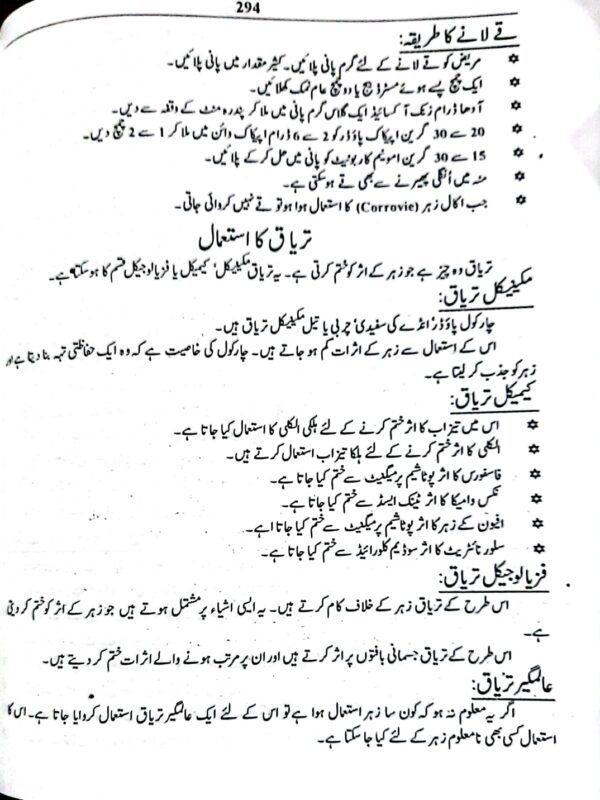 294
قے لانے کا طریقہ:
✡ مریض کو قے لانے کے لئے گرم پانی پلائیں۔ کثیر مقدار میں پانی پلائیں۔
✡ ایک چمچ پسے ہوئے مسٹرڈ بیج یا دو چمچ عام نمک کھلائیں۔
✡ آدھا ڈرام زنک آکسائیڈ ایک گلاس گرم پانی میں ملا کر پندرہ منٹ کے وقفہ سے دیں۔
✡ 20 سے 30 گرین اپیکاک پاؤڈر کو 2 سے 6 ڈرام اپیکاک وائن میں ملا کر 1 سے 2 چمچ دیں۔
✡ 15 سے 30 گرین امونیم کاربونیٹ کو پانی میں حل کر کے پلائیں۔
✡ منہ میں اُنگلی پھیرنے سے بھی قے ہو سکتی ہے۔
✡ جب اکال زہر (Corrovie) کا استعمال ہوا ہو تو قے نہیں کروائی جاتی۔
تریاق کا استعمال
تریاق وہ چیز ہے جو زہر کے اثر کو ختم کرتی ہے۔ یہ تریاق مکینیکل، کیمیکل یا فزیالوجیکل قسم کا ہو سکتا ہے۔
مکینیکل تریاق:
چارکول پاؤڈر، انڈے کی سفیدی، چربی یا تیل مکینیکل تریاق ہیں۔
اس کے استعمال سے زہر کے اثرات کم ہو جاتے ہیں۔ چارکول کی خاصیت ہے کہ وہ ایک حفاظتی تہہ بنا دیتا ہے اور
زہر کو جذب کر لیتا ہے۔
کیمیکل تریاق:
✡ اس میں تیزاب کا اثر ختم کرنے کے لئے ہلکی الکلی کا استعمال کیا جاتا ہے۔
✡ الکلی کا اثر ختم کرنے کے لئے ہلکا تیزاب استعمال کرتے ہیں۔
✡ فاسفورس کا اثر پوٹاشیم پرمیگنیٹ سے ختم کیا جاتا ہے۔
✡ نکس وامیکا کا اثر ٹینک ایسڈ سے ختم کیا جاتا ہے۔
✡ افیون کے زہر کا اثر پوٹاشیم پرمیگنیٹ سے ختم کیا جاتا ہے۔
✡ سلور نائٹریٹ کا اثر سوڈیم کلورائیڈ سے ختم کیا جاتا ہے۔
فزیالوجیکل تریاق:
اس طرح کے تریاق زہر کے خلاف کام کرتے ہیں۔ یہ ایسی اشیاء پر مشتمل ہوتے ہیں جو زہر کے اثر کو ختم کر دیتی
ہے۔
اس طرح کے تریاق جسمانی بافتوں پر اثر کرتے ہیں اور ان پر مرتب ہونے والے اثرات ختم کر دیتے ہیں۔
عالمگیر تریاق:
اگر یہ معلوم نہ ہو کہ کون سا زہر استعمال ہوا ہے تو اس کے لئے ایک عالمگیر تریاق استعمال کروایا جاتا ہے۔ اس کا
استعمال کسی بھی نامعلوم زہر کے لئے کیا جا سکتا ہے۔